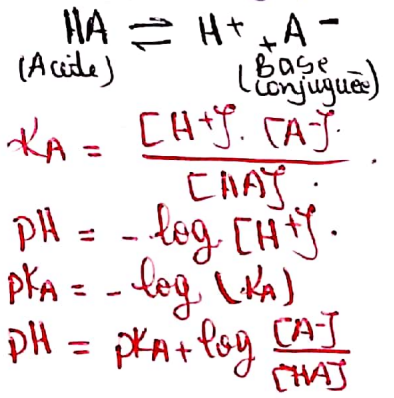 HA ⇌ H+ + A-
(Acide) (Base conjuguée)
KA = [H+].[A-] / [HA].
pH = -log [H+].
pKA = -log (KA)
pH = pKA + log [A-] / [HA]